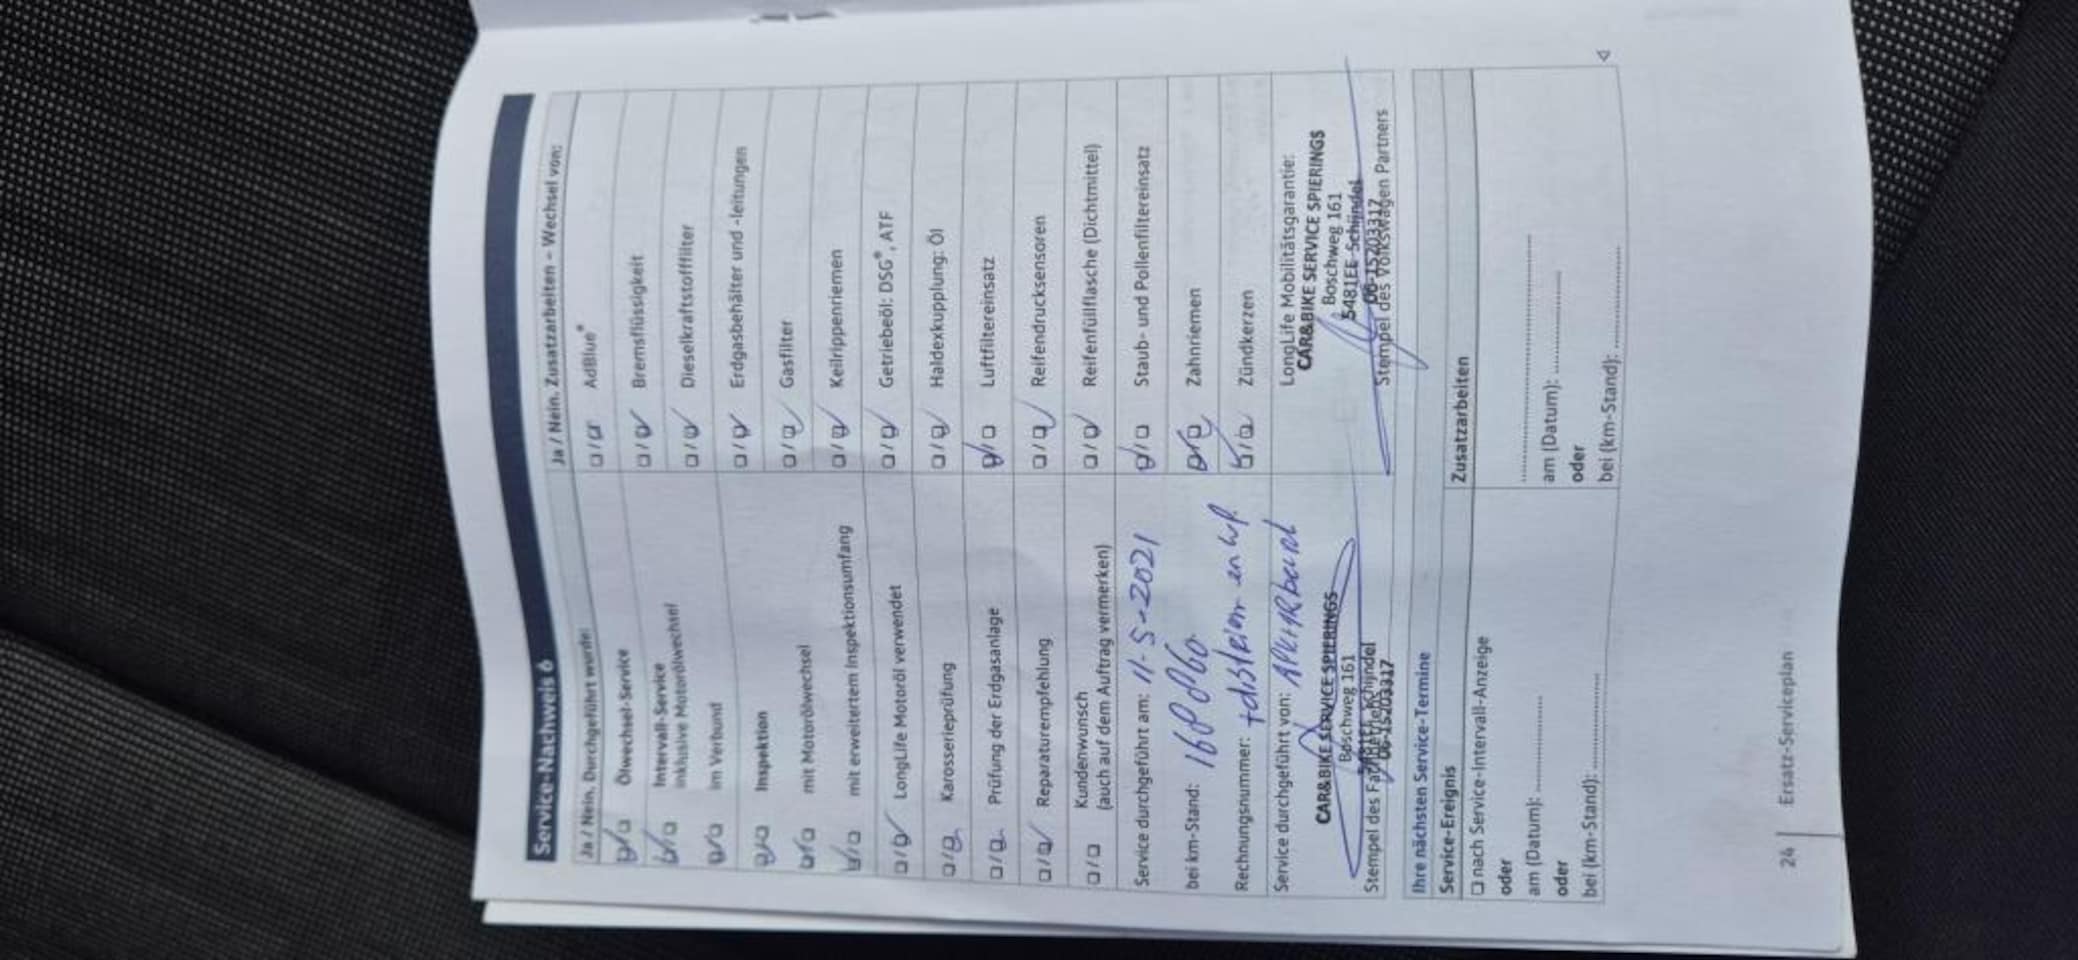 Service-Nachweis 6
Ja / Nein. Durchgeführt wurde:
Ölwechsel-Service
Intervall-Service
inklusive Motorölwechsel
im Verbund
Inspektion
mit Motorölwechsel
mit erweitertem Inspektionsumfang
LongLife Motoröl verwendet
Karosserieprüfung
Prüfung der Erdgasanlage
Reparaturempfehlung
Kundenwunsch
(auch auf dem Auftrag vermerken)
Service durchgeführt am: 11-5-2021
bei km-Stand:
Rechnungsnummer:
Service durchgeführt von:
CAR&BIKE SERVICE SPIERINGS
Boschweg 161
5481EE Schijndel
06-15203317
Stempel des Fachbetriebs
Ja / Nein. Zusatzarbeiten – Wechsel von:
AdBlue®
Bremsflüssigkeit
Dieselkraftstofffilter
Erdgasbehälter und -leitungen
Gasfilter
Keilrippenriemen
Getriebeöl: DSG®, ATF
Haldexkupplung: Öl
Luftfiltereinsatz
Reifendrucksensoren
Reifenfüllflasche (Dichtmittel)
Staub- und Pollenfiltereinsatz
Zahnriemen
Zündkerzen
LongLife Mobilitätsgarantie:
CAR&BIKE SERVICE SPIERINGS
Boschweg 161
5481EE Schijndel
06-15203317
Stempel des Volkswagen Partners
Ihre nächsten Service-Termine
Service-Ereignis
nach Service-Intervall-Anzeige
oder
am (Datum):
oder
bei (km-Stand):
Zusatzarbeiten
am (Datum):
oder
bei (km-Stand):
24 | Ersatz-Serviceplan